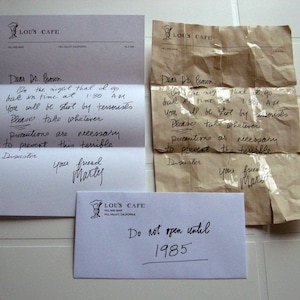 LOU'S CAFE
Dear Dr. Brown,
On the night that I go
back in time at 1:30 AM
You will be shot by terrorists
Please take whatever
precautions are necessary
to prevent this terrible
Disaster
Your friend
Marty
LOU'S CAFE
Dear Dr. Brown,
On the night that I go
back in time at 1:30 AM
You will be shot by terrorists
Please take whatever
precautions are necessary
to prevent this terrible
Disaster
Your friend
Marty
LOU'S CAFE
Do not open until
1985